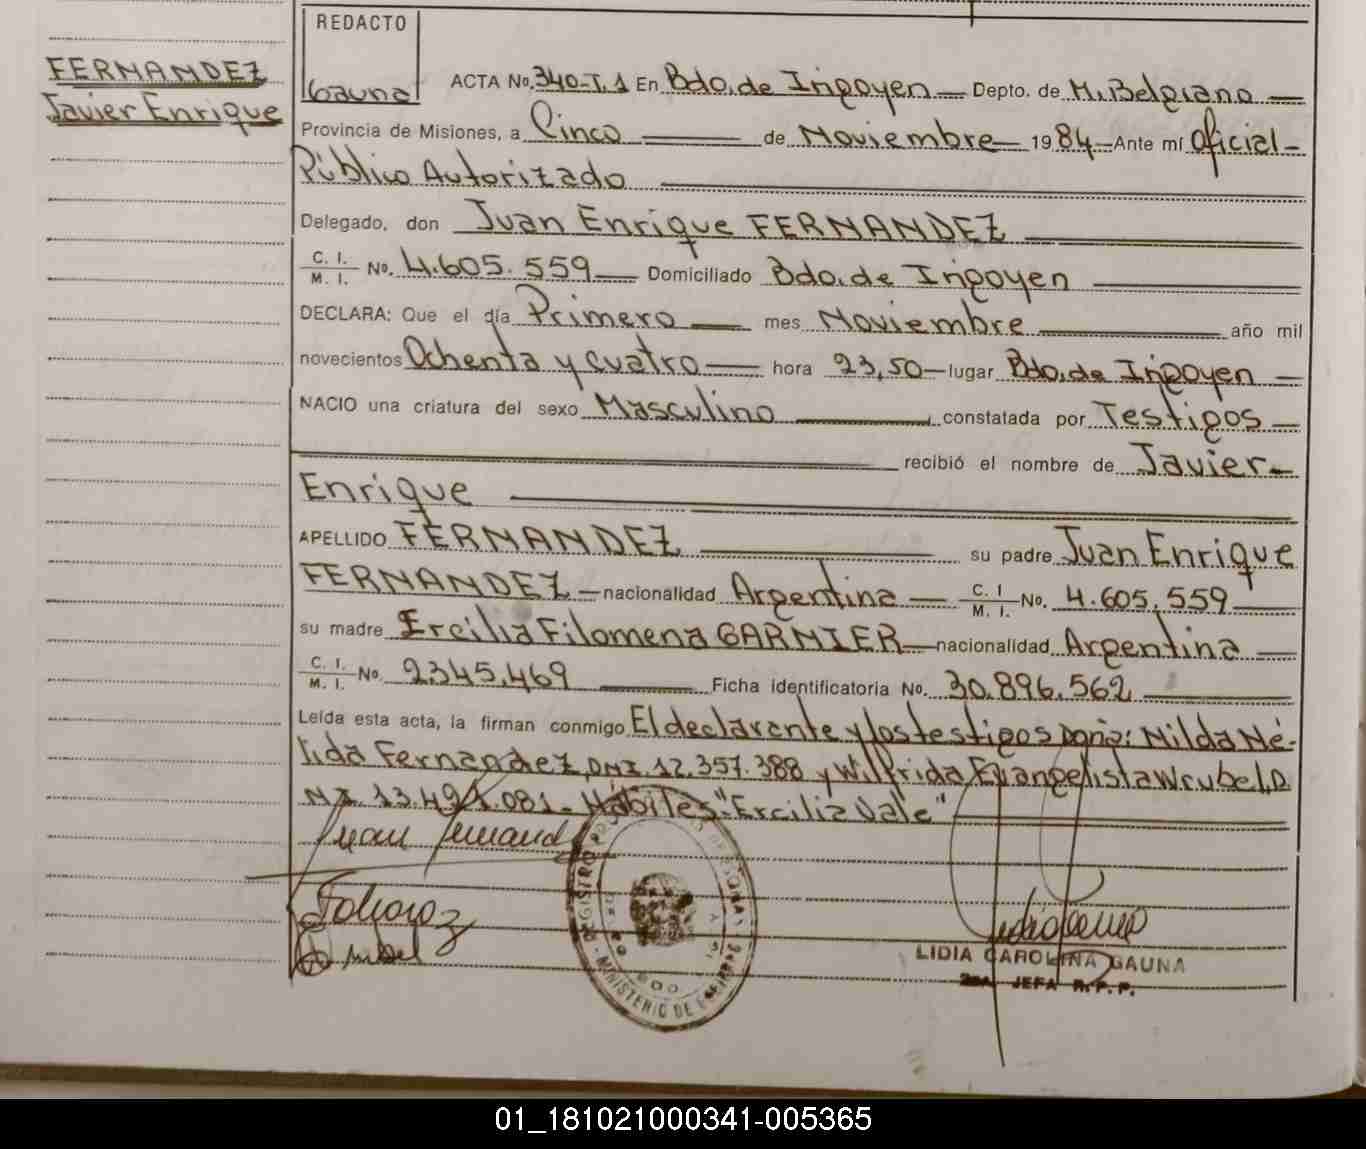 REDACTO
Gauna
FERNANDEZ
Javier Enrique
ACTA No. 340-T.1 En Bdo. de Irigoyen Depto. de M. Belgrano
Provincia de Misiones, a Cinco de Noviembre 1984 Ante mí Oficial
Público Autorizado
Delegado, don Juan Enrique FERNANDEZ
C. I.
M. I. No. 4.605.559 Domiciliado Bdo. de Irigoyen
DECLARA: Que el día Primero mes Noviembre año mil
novecientos Ochenta y Cuatro hora 23,50 lugar Bdo. de Irigoyen
NACIO una criatura del sexo Masculino constatada por Testigos
recibió el nombre de Javier
Enrique
APELLIDO FERNANDEZ su padre Juan Enrique
FERNANDEZ nacionalidad Argentina C. I. M. I. No. 4.605.559
su madre Ercilia Filomena GARNIER nacionalidad Argentina
C. I.
M. I. No. 2345.469 Ficha identificatoria No. 30.896.562
Leída esta acta, la firman conmigo El declarante y los testigos Doña: Nilda Né-
lida Fernandez, DNI. 12.357.388 y Wilfrida Evangelista Wrubel, D
NI. 13.491.081 - Hábiles. "Ercilia Vale"
MINISTERIO DE
LIDIA CAROLINA GAUNA
2da. JEFA R.P.P.
01_181021000341-005365